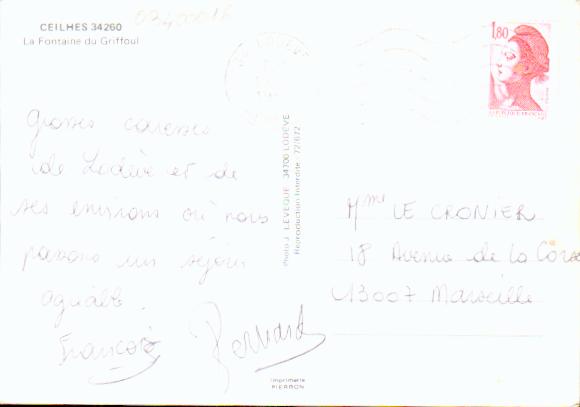 CEILHES 34260
La Fontaine du Griffoul
1,80
Grosses caresses
de Lodève et de
ses environs où nous
passons un séjour
agréable.
Bernard
Photo J. LEVEQUE 34700 LODÈVE
Reproduction Interdite 72/672
Mme LE CRONIER
18 Avenue de la Corse
13007 Marseille
Imprimerie
PIERRON